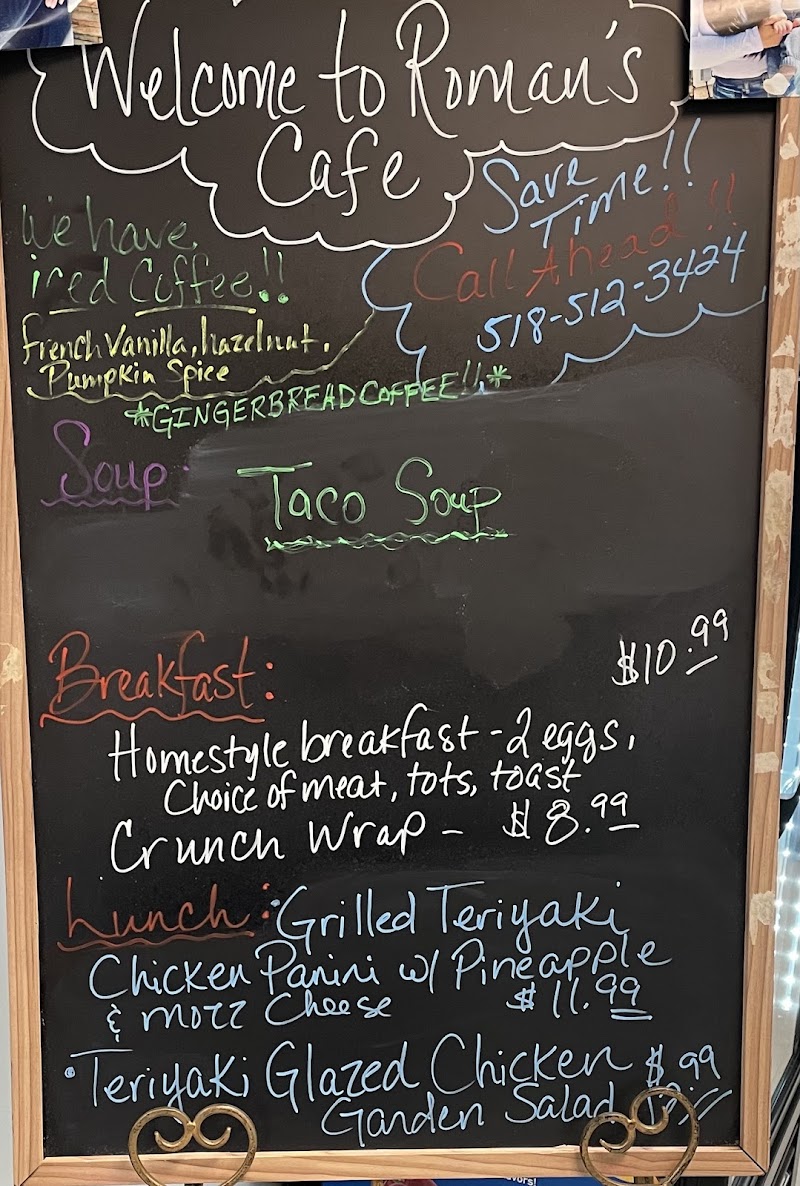 Welcome to Roman's
Cafe
Save
Time!!
Call Ahead!!
518-512-3424
We have
iced Coffee!!
French Vanilla, hazelnut,
Pumpkin Spice
*GINGERBREAD COFFEE!!*
Soup:
Taco Soup
Breakfast:
$10.99
Homestyle breakfast - 2 eggs,
Choice of meat, tots, toast
Crunch Wrap - $8.99
Lunch: • Grilled Teriyaki
Chicken Panini w/ Pineapple
& mozz Cheese $11.99
• Teriyaki Glazed Chicken $ .99
Garden Salad